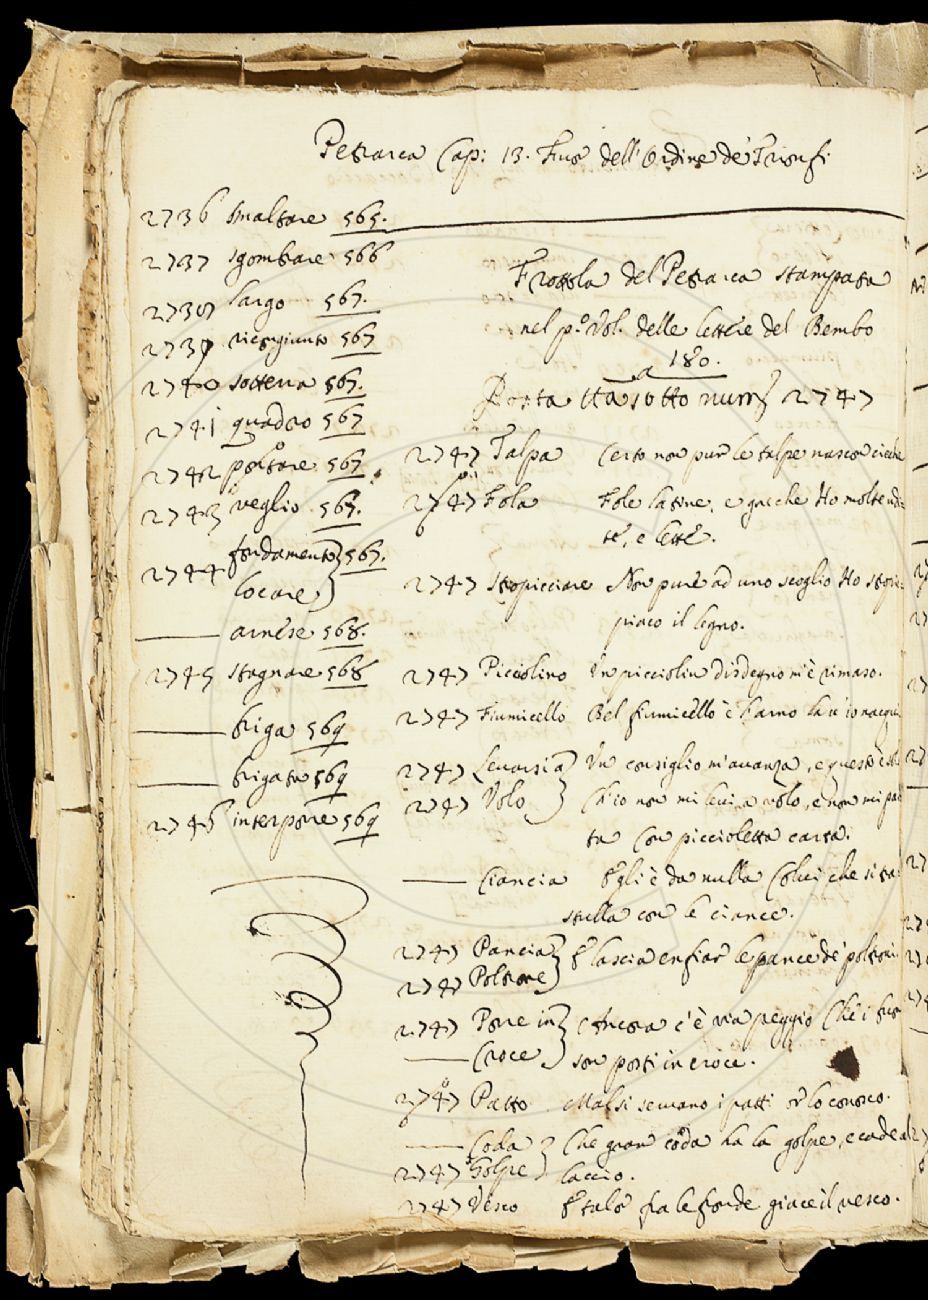 Petrarca Cap: 13. Fuor dell'Ordine de Trionfi
2736 smaltare 565.
2737 sgombrare 566
2738 largo 567.
2739 ricongiunto 567
2740 sotterra 567.
2741 quadro 567
2742 portare 567
2743 veglio 567.
2744 fondamento } 567.
locare }
—— arnese 568.
2745 stagnare 568
—— briga 569
—— brigata 569
2746 interporre 569
Frottola del Petrarca stampata
nel p.º Vol. delle lettere del Bembo
a 180.
Posta sotto 2747
2747 Talpa Certo non pur le talpe nascon cieche
2747 Fola Fole latine, e greche Ho molte udi-
te, e lette.
2747 stropicciare Non pure ad uno scoglio Ho strop-
piciato il legno.
2747 Picciolino Un picciolin disdegno m'è rimaso.
2747 Fiumicello Bel fiumicello è l'arno là v'io nacqui
2747 Levarsi a } Un consiglio m'avanza, e questo è
2747 Volo } Ch'io non mi levi a volo, e non mi par
ta Con piccioletta carta.
—— Ciancia Egli è da nulla Colui che si tra
stulla con le ciance.
2747 Pancia } E lascia enfiar le pance de' poltroni
2747 Poltrone }
2747 Porre in } Ancora c'è via peggio Che i
—— Croce } son posti in croce.
2747 Patto Mal si servano i patti
—— Coda } Che gran coda ha la golpe, e cade al
2747 Golpe } laccio.
2747 Vesco E talor fra le fronde giace il vesco.